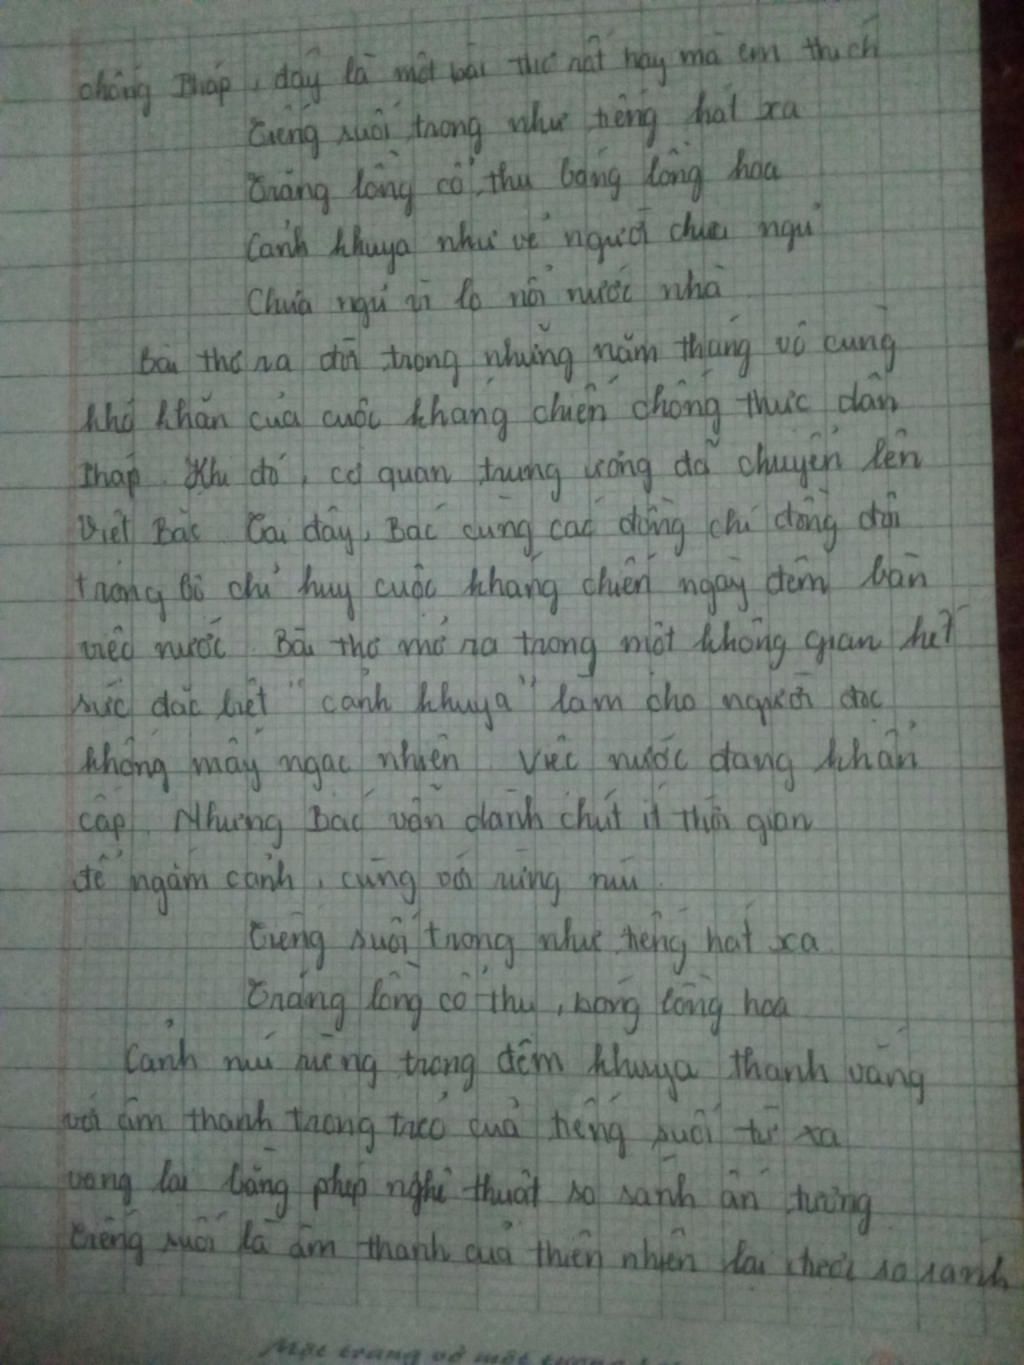 chống Pháp, đây là một bài thơ rất hay mà em thích
Tiếng suối trong như tiếng hát xa
Trăng lồng cổ thụ bóng lồng hoa
Cảnh khuya như vẽ người chưa ngủ
Chưa ngủ vì lo nỗi nước nhà
Bài thơ ra đời trong những năm tháng vô cùng
khó khăn của cuộc kháng chiến chống thực dân
Pháp. Khi đó, cơ quan trung ương đã chuyển lên
Việt Bắc. Tại đây, Bác cùng các đồng chí đồng đội
trong Bộ chỉ huy cuộc kháng chiến ngày đêm bàn
việc nước. Bài thơ mở ra trong một không gian hết
sức đặc biệt "cảnh khuya" làm cho người đọc
không mấy ngạc nhiên. Việc nước đang khẩn
cấp. Nhưng Bác vẫn dành chút ít thời gian
để ngắm cảnh, cùng với rừng núi.
Tiếng suối trong như tiếng hát xa
Trăng lồng cổ thụ, bóng lồng hoa
Cảnh núi rừng trong đêm khuya thanh vắng
với âm thanh trong trẻo của tiếng suối từ xa
vọng lại bằng phép nghệ thuật so sánh ấn tượng.
Tiếng suối là âm thanh của thiên nhiên lại được so sánh